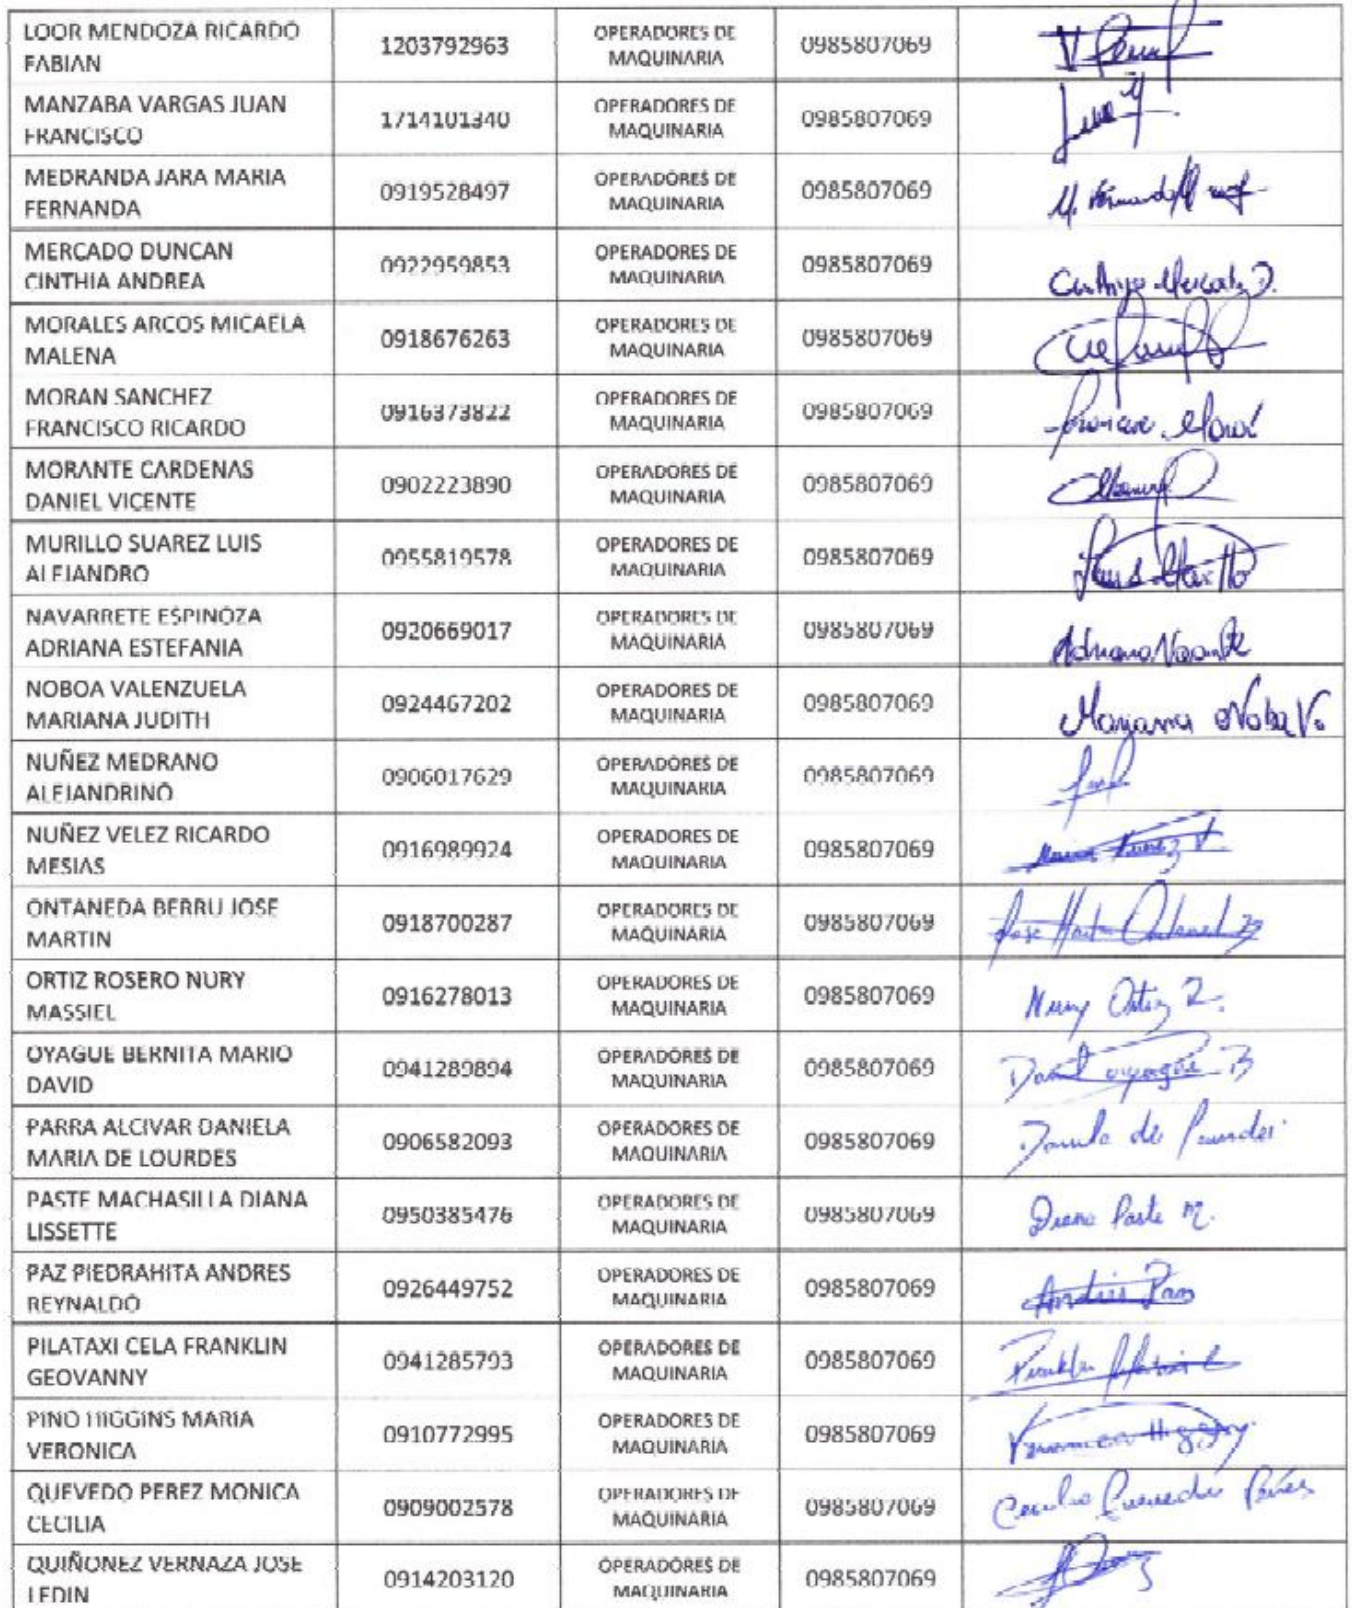 LOOR MENDOZA RICARDO FABIAN 1203792963 OPERADORES DE MAQUINARIA 0985807069
MANZABA VARGAS JUAN FRANCISCO 1714101340 OPERADORES DE MAQUINARIA 0985807069
MEDRANDA JARA MARIA FERNANDA 0919528497 OPERADORES DE MAQUINARIA 0985807069
MERCADO DUNCAN CINTHIA ANDREA 0922959853 OPERADORES DE MAQUINARIA 0985807069
MORALES ARCOS MICAELA MALENA 0918676263 OPERADORES DE MAQUINARIA 0985807069
MORAN SANCHEZ FRANCISCO RICARDO 0916373822 OPERADORES DE MAQUINARIA 0985807069
MORANTE CARDENAS DANIEL VICENTE 0902223890 OPERADORES DE MAQUINARIA 0985807069
MURILLO SUAREZ LUIS ALEJANDRO 0955819578 OPERADORES DE MAQUINARIA 0985807069
NAVARRETE ESPINOZA ADRIANA ESTEFANIA 0920669017 OPERADORES DE MAQUINARIA 0985807069
NOBOA VALENZUELA MARIANA JUDITH 0924467202 OPERADORES DE MAQUINARIA 0985807069 Mariana Noboa V.
NUÑEZ MEDRANO ALEJANDRINO 0906017629 OPERADORES DE MAQUINARIA 0985807069
NUÑEZ VELEZ RICARDO MESIAS 0916989924 OPERADORES DE MAQUINARIA 0985807069
ONTANEDA BERRU JOSE MARTIN 0918700287 OPERADORES DE MAQUINARIA 0985807069
ORTIZ ROSERO NURY MASSIEL 0916278013 OPERADORES DE MAQUINARIA 0985807069 Nury Ortiz R.
OYAGUE BERNITA MARIO DAVID 0941289894 OPERADORES DE MAQUINARIA 0985807069 David Oyague B
PARRA ALCIVAR DANIELA MARIA DE LOURDES 0906582093 OPERADORES DE MAQUINARIA 0985807069
PASTE MACHASILLA DIANA LISSETTE 0950385476 OPERADORES DE MAQUINARIA 0985807069 Diana Paste M.
PAZ PIEDRAHITA ANDRES REYNALDO 0926449752 OPERADORES DE MAQUINARIA 0985807069 Andres Paz
PILATAXI CELA FRANKLIN GEOVANNY 0941285793 OPERADORES DE MAQUINARIA 0985807069
PINO HIGGINS MARIA VERONICA 0910772995 OPERADORES DE MAQUINARIA 0985807069
QUEVEDO PEREZ MONICA CECILIA 0909002578 OPERADORES DE MAQUINARIA 0985807069
QUIÑONEZ VERNAZA JOSE LEDIN 0914203120 OPERADORES DE MAQUINARIA 0985807069